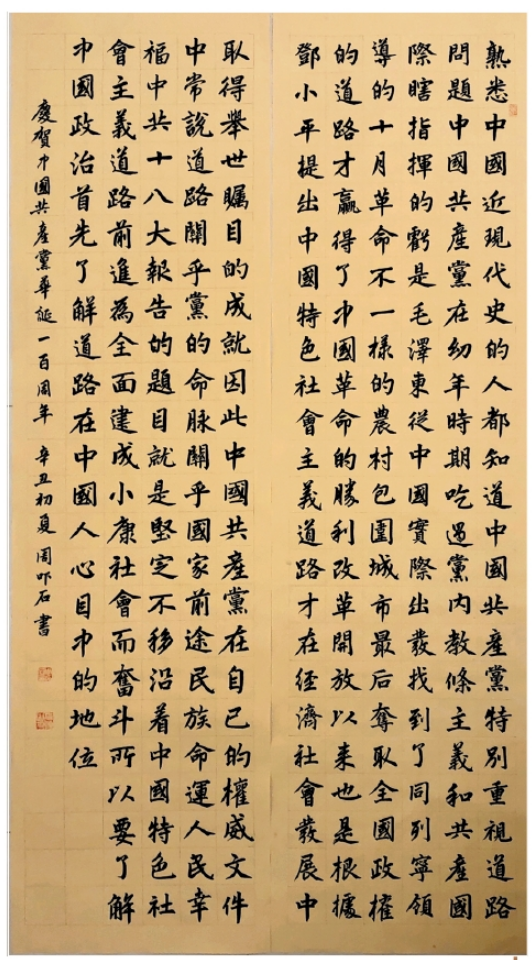 熟悉中國近現代史的人都知道中國共產黨特別重視道路
問題中國共產黨在幼年時期吃過黨內教條主義和共產國
際瞎指揮的虧是毛澤東從中國實際出發找到了同列寧領
導的十月革命不一樣的農村包圍城市最后奪取全國政權
的道路才贏得了中國革命的勝利改革開放以来也是根據
鄧小平提出中國特色社會主義道路才在經濟社會發展中
取得舉世矚目的成就因此中國共產黨在自己的權威文件
中常說道路關乎黨的命脉關乎國家前途民族命運人民幸
福中共十八大報告的題目就是堅定不移沿着中國特色社
會主義道路前進為全面建成小康社會而奮斗所以要了解
中國政治首先了解道路在中國人心目中的地位
慶賀中國共產黨華誕一百周年 辛丑初夏 周 石書